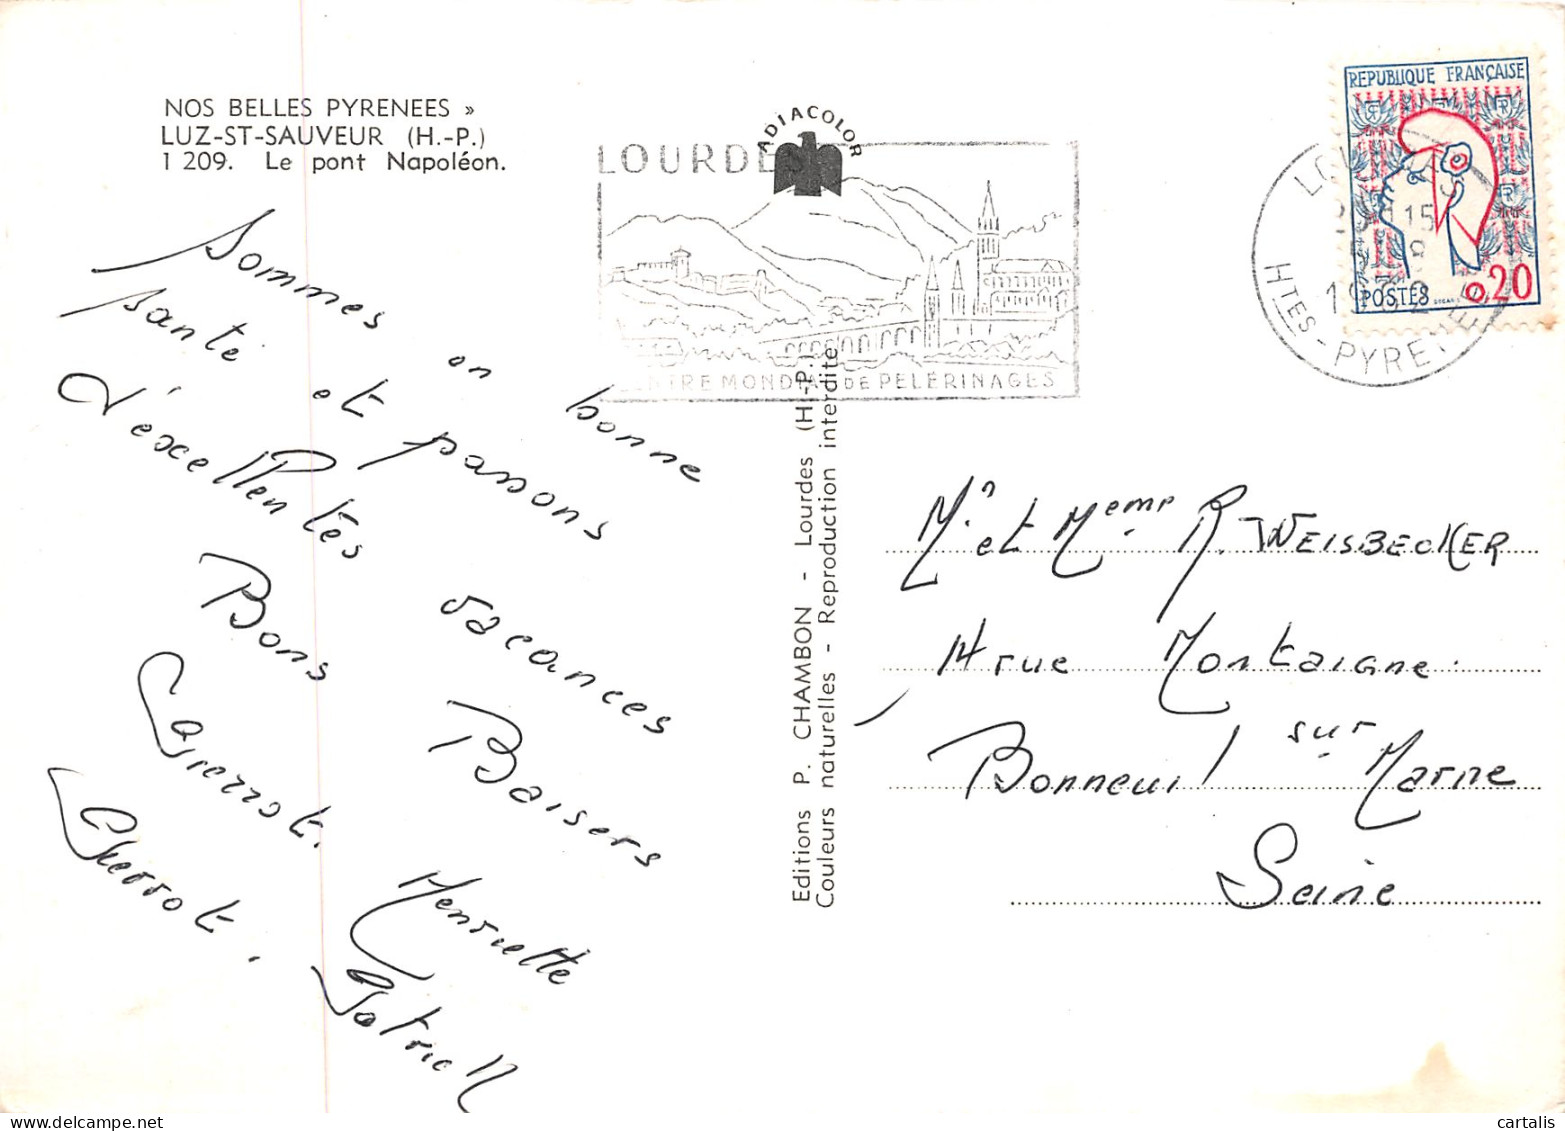 NOS BELLES PYRENEES »
LUZ-ST-SAUVEUR (H.-P.)
1 209. Le pont Napoléon.
Sommes en bonne
santé et passons
d'éxcellentes vacances
Bons Baisers
Pierrot. Henriette
Pierrot. Patrick
ADIACOLOR
LOURDES
CENTRE MONDIAL DE PELERINAGES
Editions P. CHAMBON - Lourdes (H.-P.)
Couleurs naturelles - Reproduction interdite
REPUBLIQUE FRANÇAISE
POSTES 0,20
LOURDES
15
8
HTES-PYRENEES
Mr et Meme R. WEISBECKER
14 rue Montaigne.
Bonneuil sur Marne
Seine
cartalis